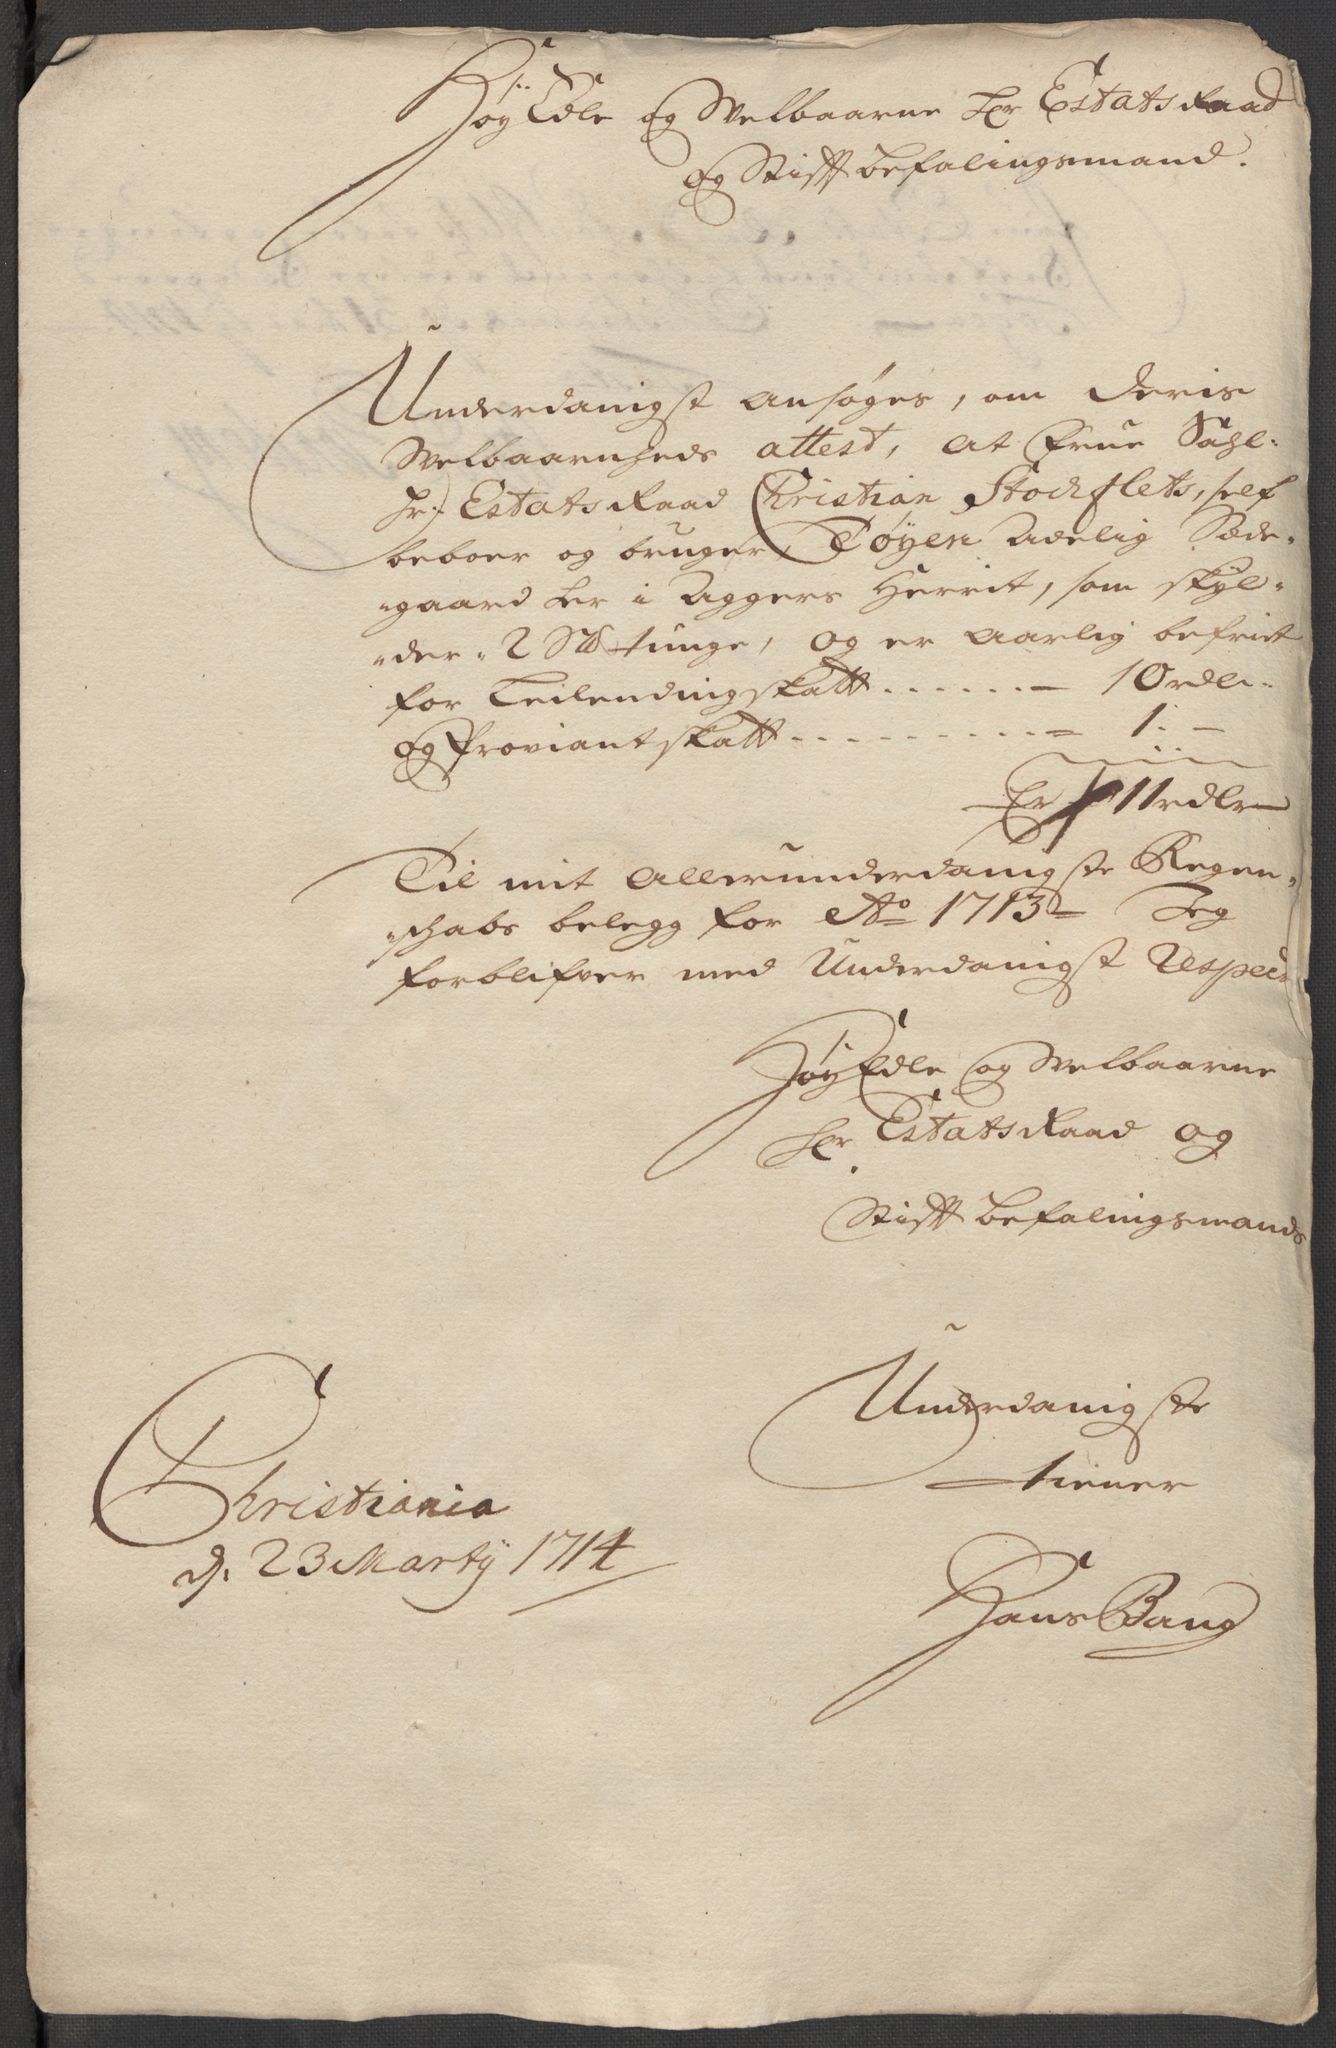 HøyEdle og Welbaarne Hr Estats Raad
og Stifft befalingsmand.
Underdanigst ansøges, om Deris
Welbaarnheds attest, at Frue Sahl:
Hr: Estats Raad Christian Stockflets, self
beboer og bruger, Tøyen Adelig Sæde-
gaard her i Aggers Herrit, som skyl-
der 2 Skd tunge, og er aarlig befriet
for Leilendingskatt ...... — 10 rdlr.
og Proviantskatt .......... — 1: —
Er 11 rdlr
Til mit allerunderdanigste Regen-
schabs belegg for Ao 1713 — Jeg
forblifver med Underdanigst Respect
HøyEdle og Welbaarne
Hr Estats Raad og
Stifft befalingsmands
Underdanigste
tiener
Christiania
d. 23 Marty 1714
Hans Bang